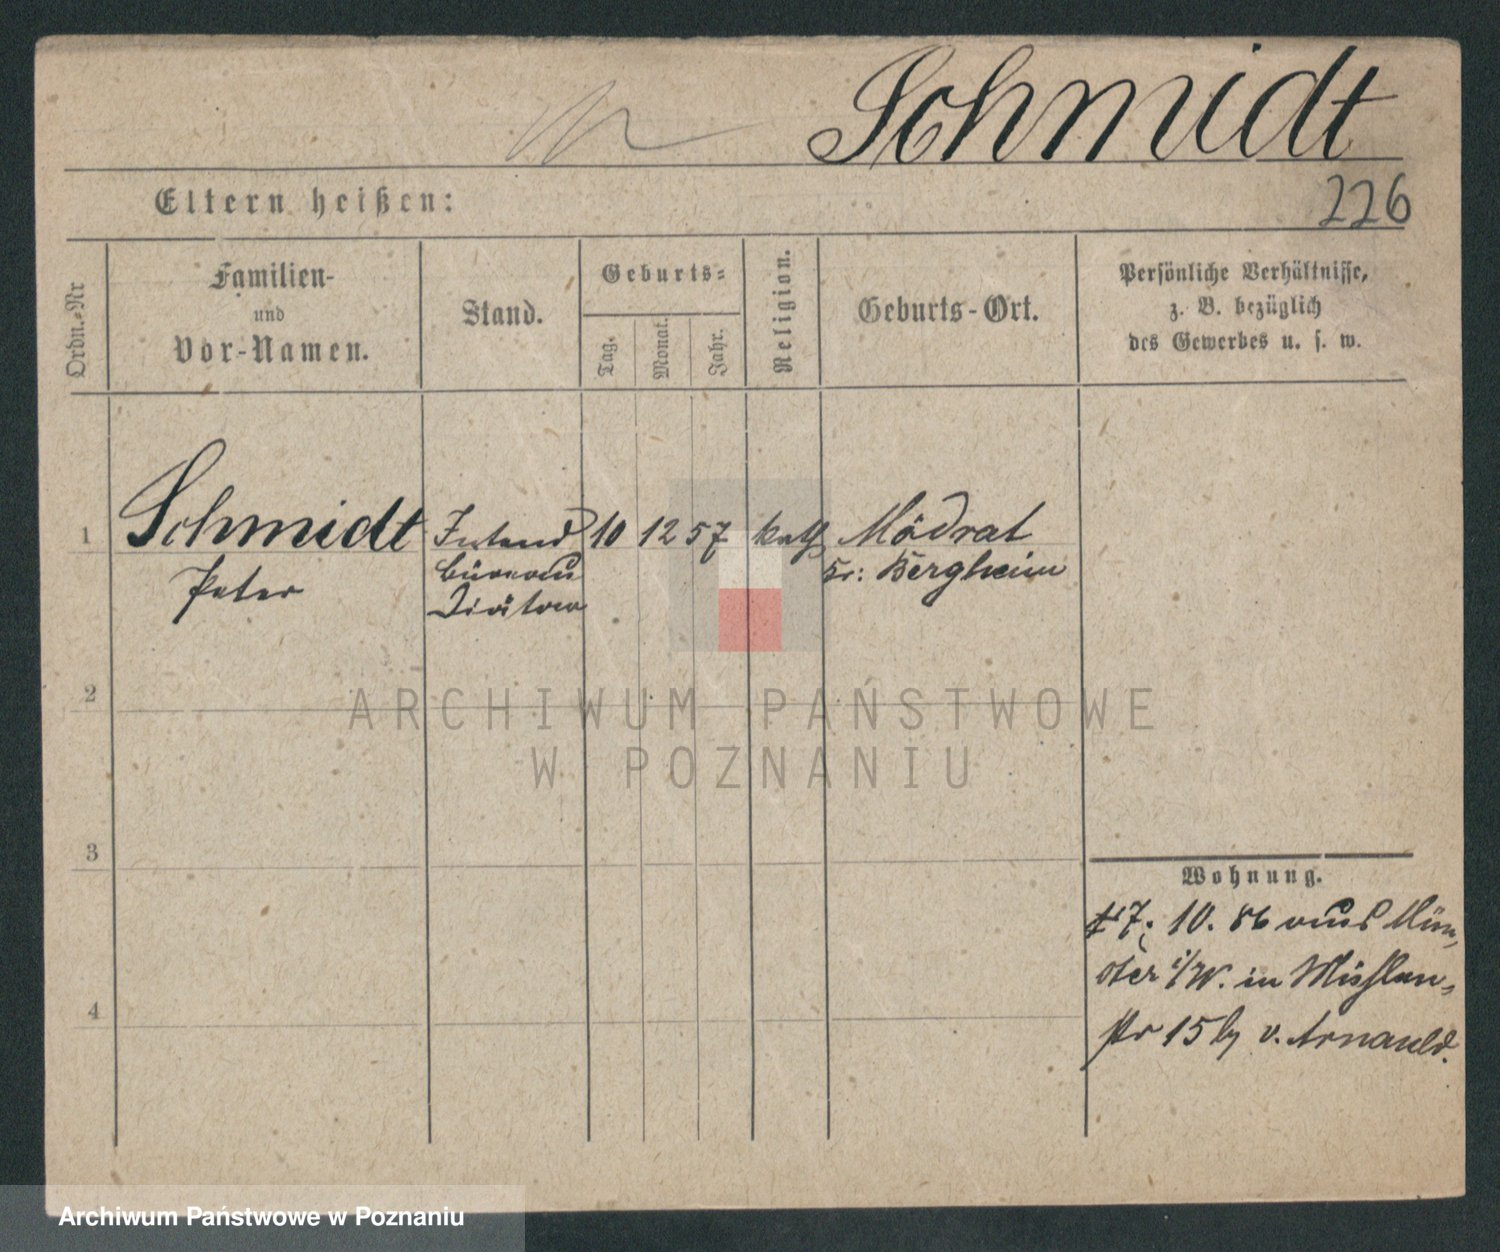 Schmidt
226
Eltern heißen:
Ordn.-Nr
Familien-
und
Vor-Namen.
Stand.
Geburts-
Tag.
Monat.
Jahr.
Religion.
Geburts-Ort.
Persönliche Verhältnisse,
z. B. bezüglich
des Gewerbes u. s. w.
1
Schmidt
Peter
Intend
büreau
Diätar
10
12
57
kath
Mödrat
Kr: Bergheim
2
3
4
Wohnung.
7. 10. 86 aus Mün-
ster i/W. in Mühlen-
str 15 by v. Arnauld.
ARCHIWUM PAŃSTWOWE
W POZNANIU
Archiwum Państwowe w Poznaniu